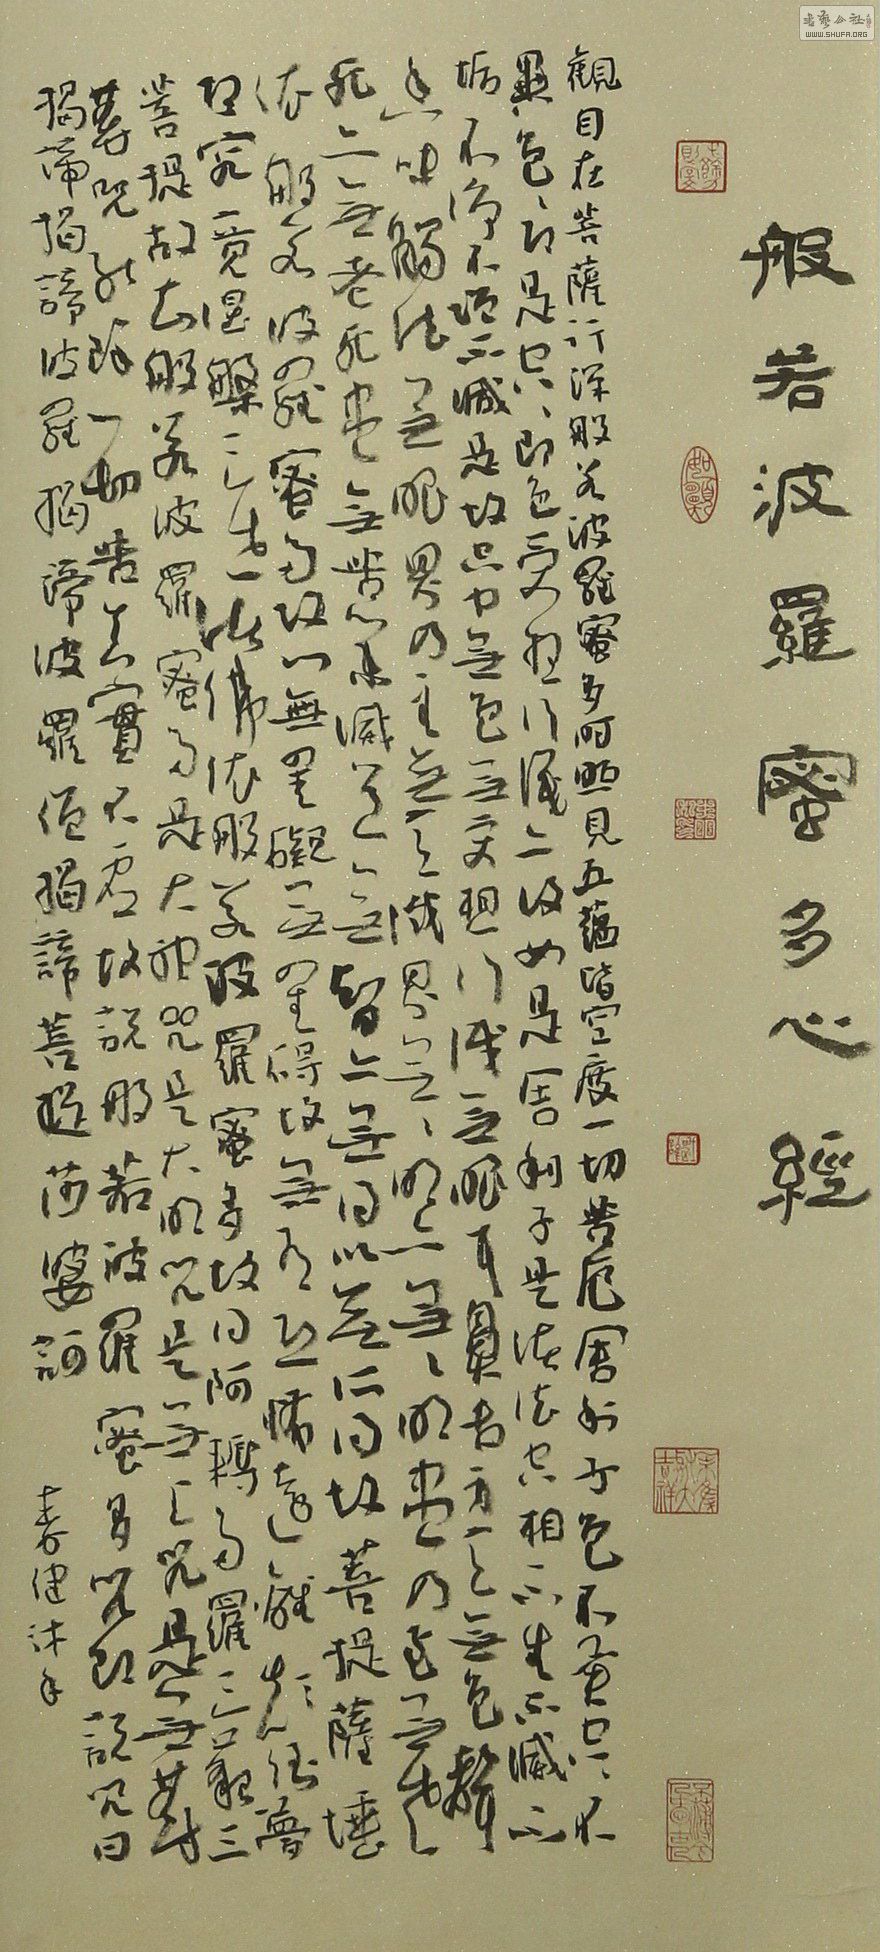 般若波羅蜜多心經
觀自在菩薩行深般若波羅蜜多時照見五蘊皆空度一切苦厄舍利子色不異空空不
異色色即是空空即色受想行識亦復如是舍利子是諸法空相不生不滅不
垢不淨不增不減是故空中無色無受想行識無眼耳鼻舌身意無色聲
香味觸法無眼界乃至無意識界無無明亦無無明盡乃至無老
死亦無老死盡無苦集滅道無智亦無得以無所得故菩提薩埵
依般若波羅蜜多故心無罣礙無罣礙故無有恐怖遠離顛倒夢
想究竟涅槃三世諸佛依般若波羅蜜多故得阿耨多羅三藐三
菩提故知般若波羅蜜多是大神咒是大明咒是無上咒是無等
等咒能除一切苦真實不虛故說般若波羅蜜多咒即說咒曰
揭諦揭諦波羅揭諦波羅僧揭諦菩提莎婆訶
春健沐手
書藝公社
WWW.SHUFA.ORG